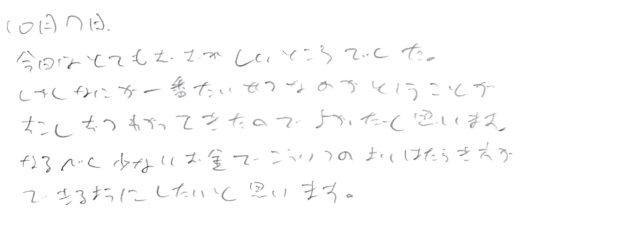 10月7日
今日はとてもむずかしいところでした。
しかしなにが一番たいせつなのかということが
すこしずつわかってきたのでよかったと思います
なるべく少ないお金でこうりつのよいはたらき方が
できるようにしたいと思います。